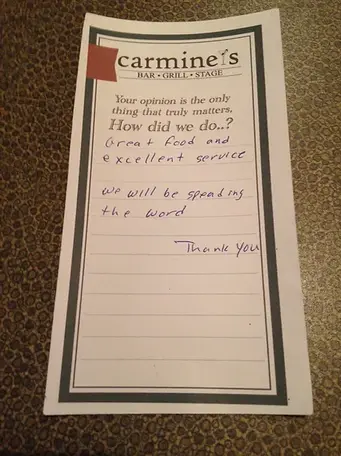 carmine's
BAR • GRILL • STAGE
Your opinion is the only
thing that truly matters.
How did we do..?
Great food and
excellent service
we will be spending
the word
Thank you